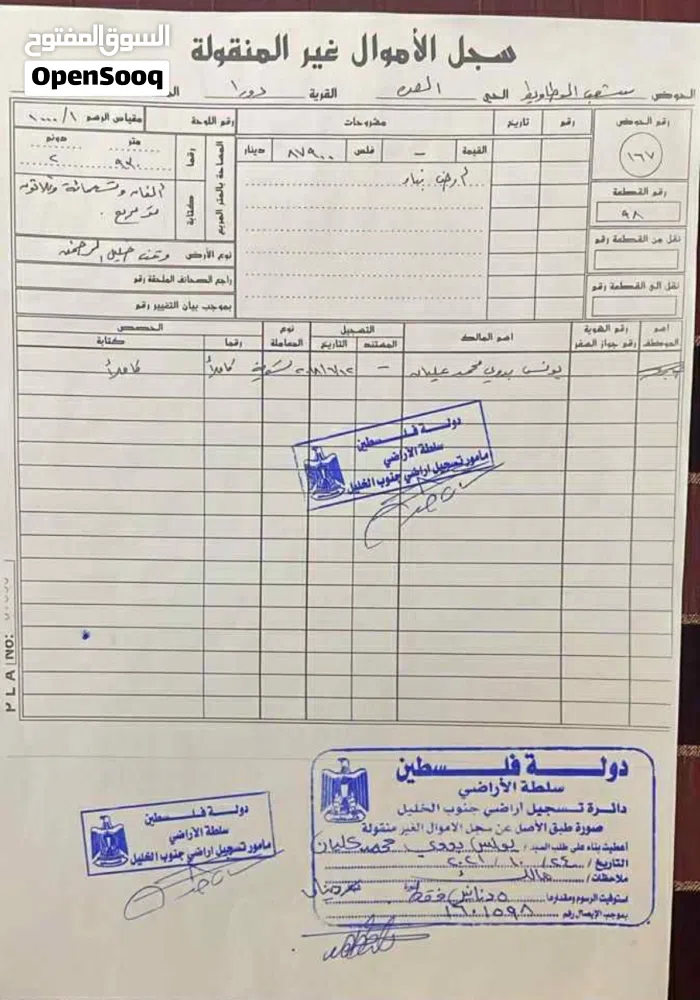 السوق المفتوح
OpenSooq
سجل الأموال غير المنقولة
الحوض الحي القرية دورا
رقم الحوض
١٦٧
رقم القطعة
٩٨
نقل من القطعة رقم
نقل الى القطعة رقم
رقم تاريخ مشروحات
القيمة — فلس ٨٧٩٠٠ دينار
أرض بناء
رقم اللوحة مقياس الرسم ١/١٠٠٠
المساحة بالمتر المربع
رقما
متر دونم
٩٣٠ ٢
كتابة
الفان وتسعمائة وثلاثون
متر مربع
نوع الأرض وقف خليل الرحمن
راجع الصحائف الملحقة رقم
بموجب بيان التغيير رقم
اسم الموظف
رقم الهوية
رقم جواز السفر
اسم المالك
التسجيل
المستند التاريخ
نوع المعاملة
الحصص
رقما كتابة
يونس بدوي محمد عليان — ٢٠١٨/٧/١٢ تسوية كاملاً كاملاً
دولة فلسطين
سلطة الأراضي
مأمور تسجيل اراضي جنوب الخليل
PLA NO:
دولة فلسطين
سلطة الأراضي
دائرة تسجيل اراضي جنوب الخليل
صورة طبق الأصل عن سجل الاموال الغير منقولة
أعطيت بناء على طلب السيد / يونس بدوي محمد عليان
التاريخ / ٢٤ / ١٠ / ٢٠٢١
ملاحظات / مالك
استوفيت الرسوم ومقدارها ٥ دنانير فقط
بموجب الإيصال رقم ١٦٠١٥٩٨
دولة فلسطين
سلطة الأراضي
مأمور تسجيل اراضي جنوب الخليل